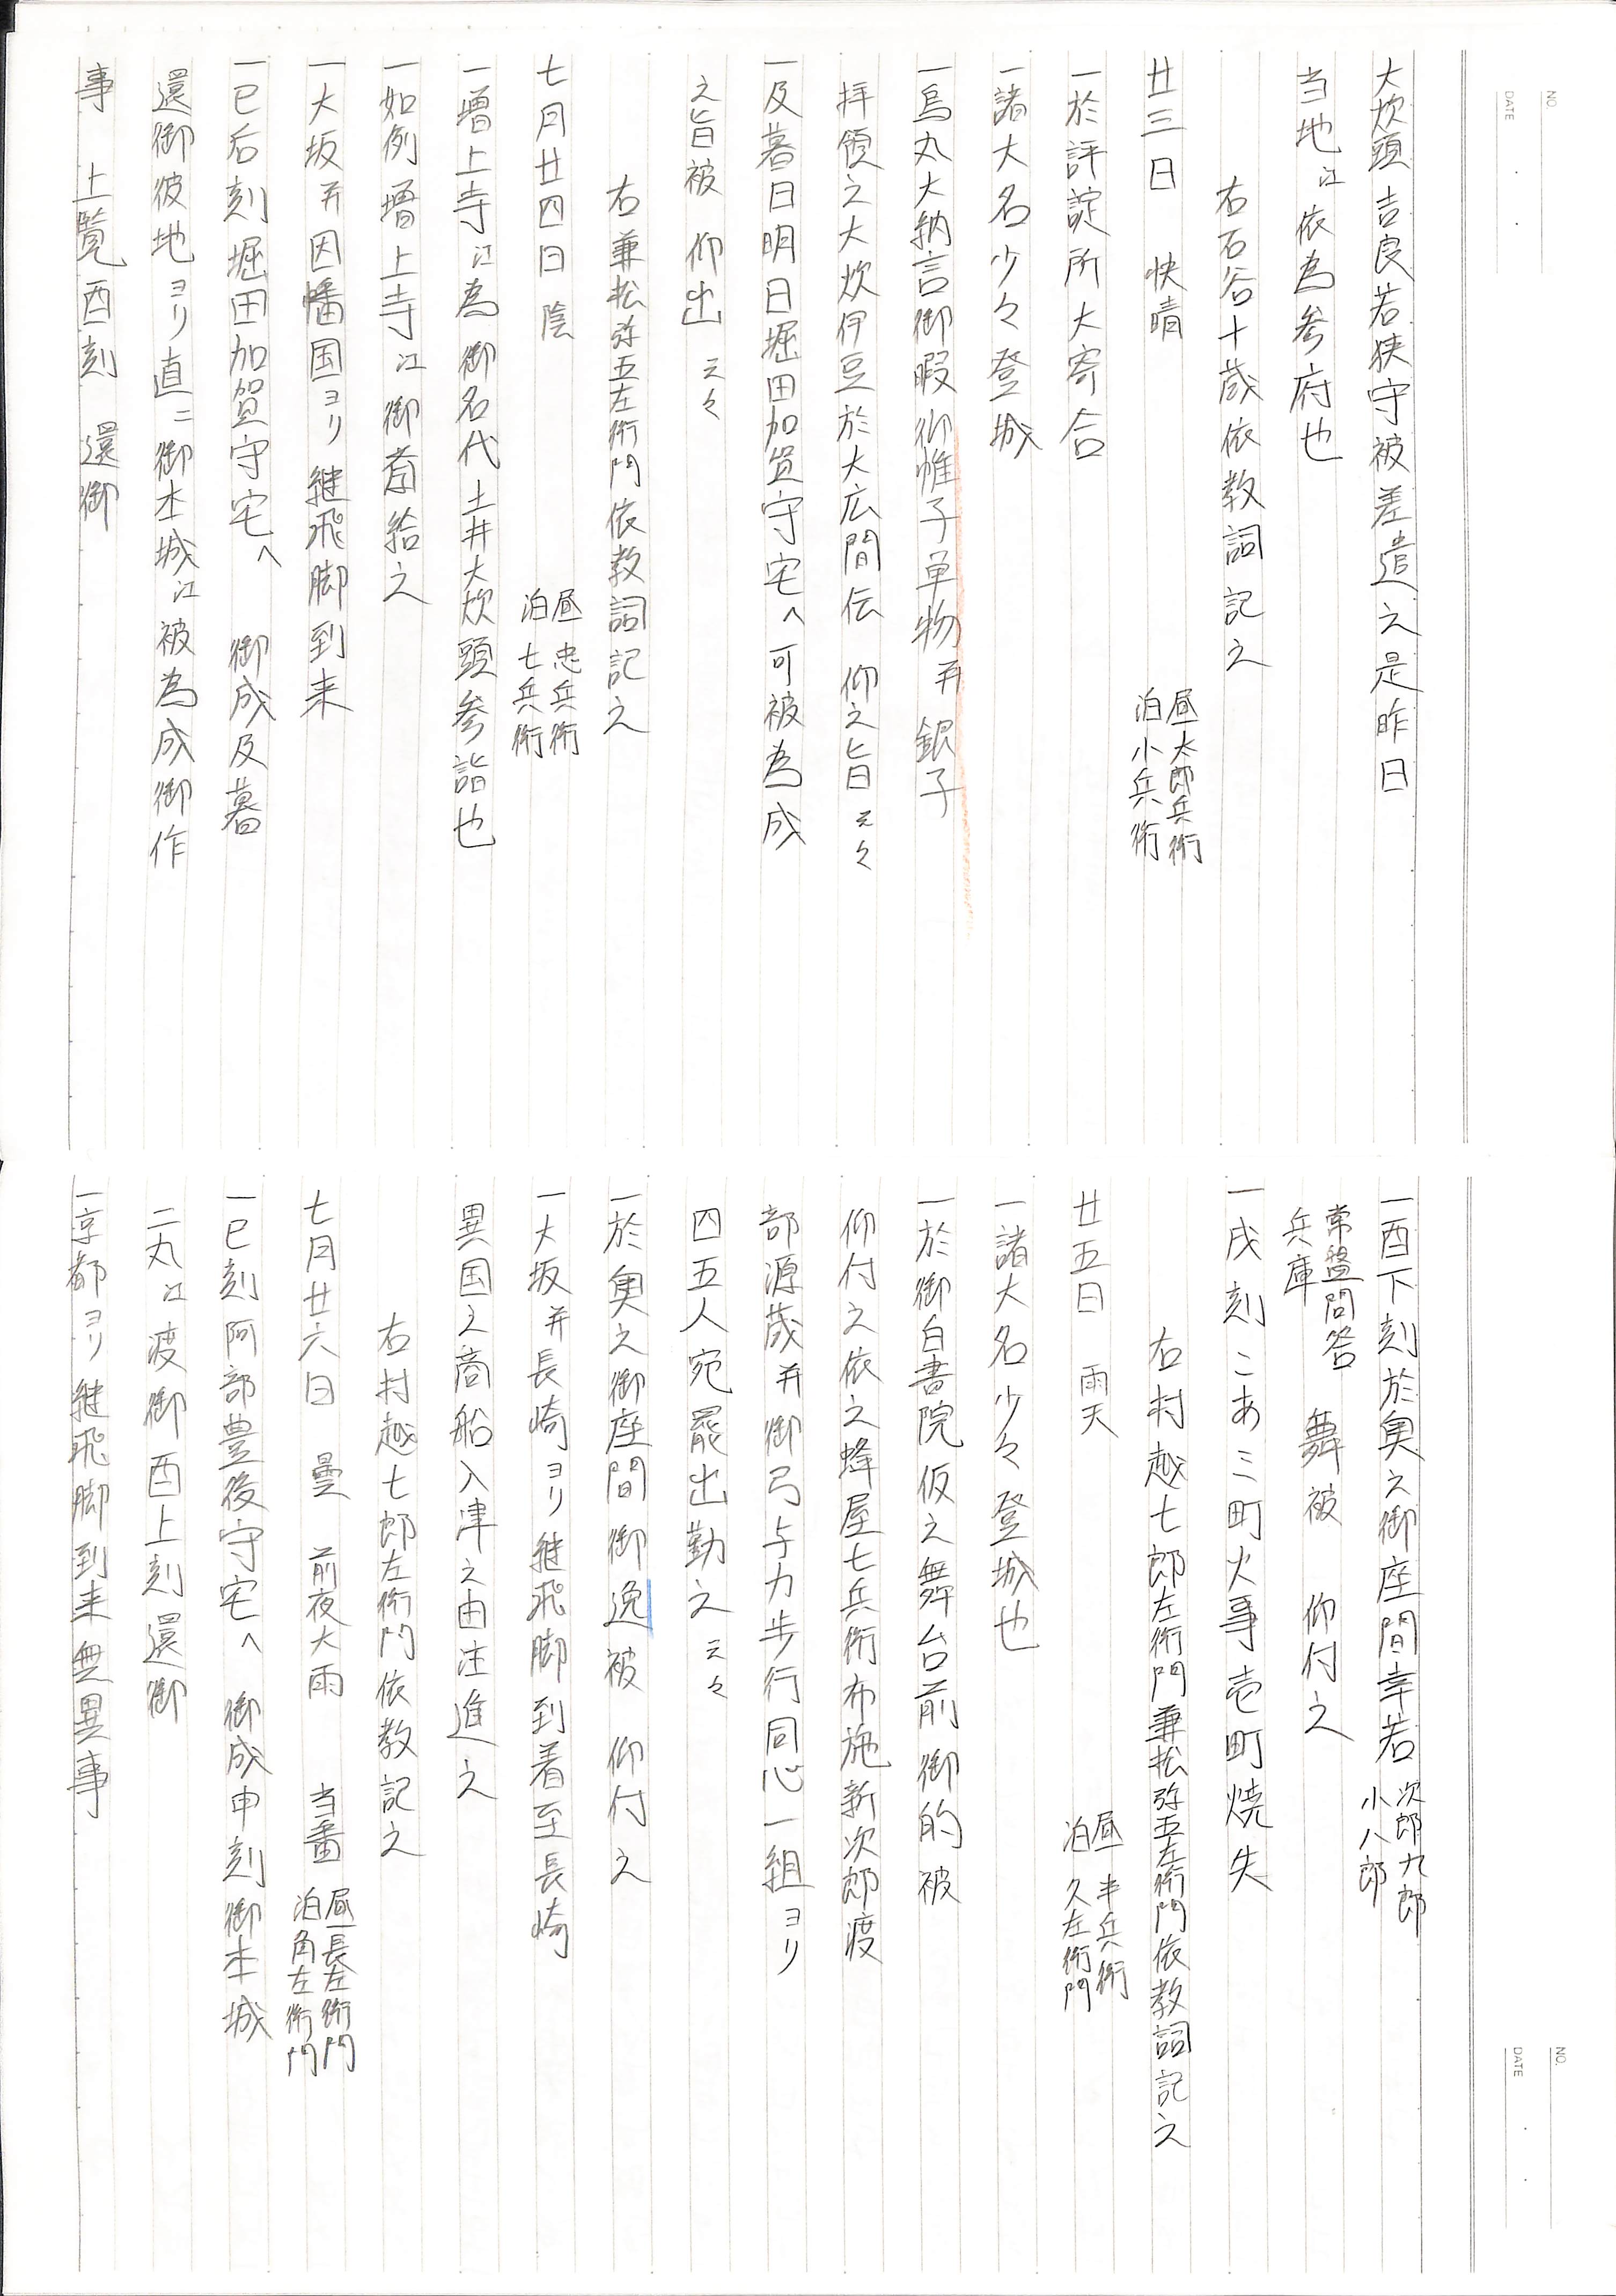 NO.
DATE
大炊頭吉良若狭守被差遣之是昨日
当地江依為参府也
右石谷十蔵依教詞記之
廿三日 快晴 昼太郎兵衛
泊小兵衛
一於評諚所大寄合
一諸大名少々登城
一烏丸大納言御暇御帷子単物并銀子
拝領之大炊伊豆於大広間伝 仰之旨云々
一及暮日明日堀田加賀守宅へ可被為成
之旨被 仰出云々
右兼松弥五左衛門依教詞記之
七月廿四日 陰 昼忠兵衛
泊七兵衛
一増上寺江為御名代土井大炊頭参詣也
一如例増上寺江御斎給之
一大坂并因幡国ヨリ継飛脚到来
一巳后刻堀田加賀守宅へ 御成及暮
還御彼地ヨリ直ニ御本城江被為成御作
事 上覧酉刻 還御
NO.
DATE
一酉下刻於奥之御座間幸若 次郎九郎
小八郎
常盤問答
兵庫 舞被 仰付之
一戌刻こあミ町火事壱町焼失
右村越七郎左衛門兼松弥五左衛門依教詞記之
廿五日 雨天 昼半兵衛
泊久左衛門
一諸大名少々登城也
一於御白書院仮之舞台前御的被
仰付之依之蜂屋七兵衛布施新次郎渡
部源蔵并御弓与力歩行同心一組ヨリ
四五人宛罷出勤之云々
一於奥之御座間御逸被 仰付之
一大坂并長崎ヨリ継飛脚到着至長崎
異国之商船入津之由注進之
右村越七郎左衛門依教記之
七月廿六日 曇 前夜大雨 当番 昼長左衛門
泊角左衛門
一巳刻阿部豊後守宅へ 御成申刻御本城
二丸江渡御酉上刻還御
一京都ヨリ継飛脚到来無異事